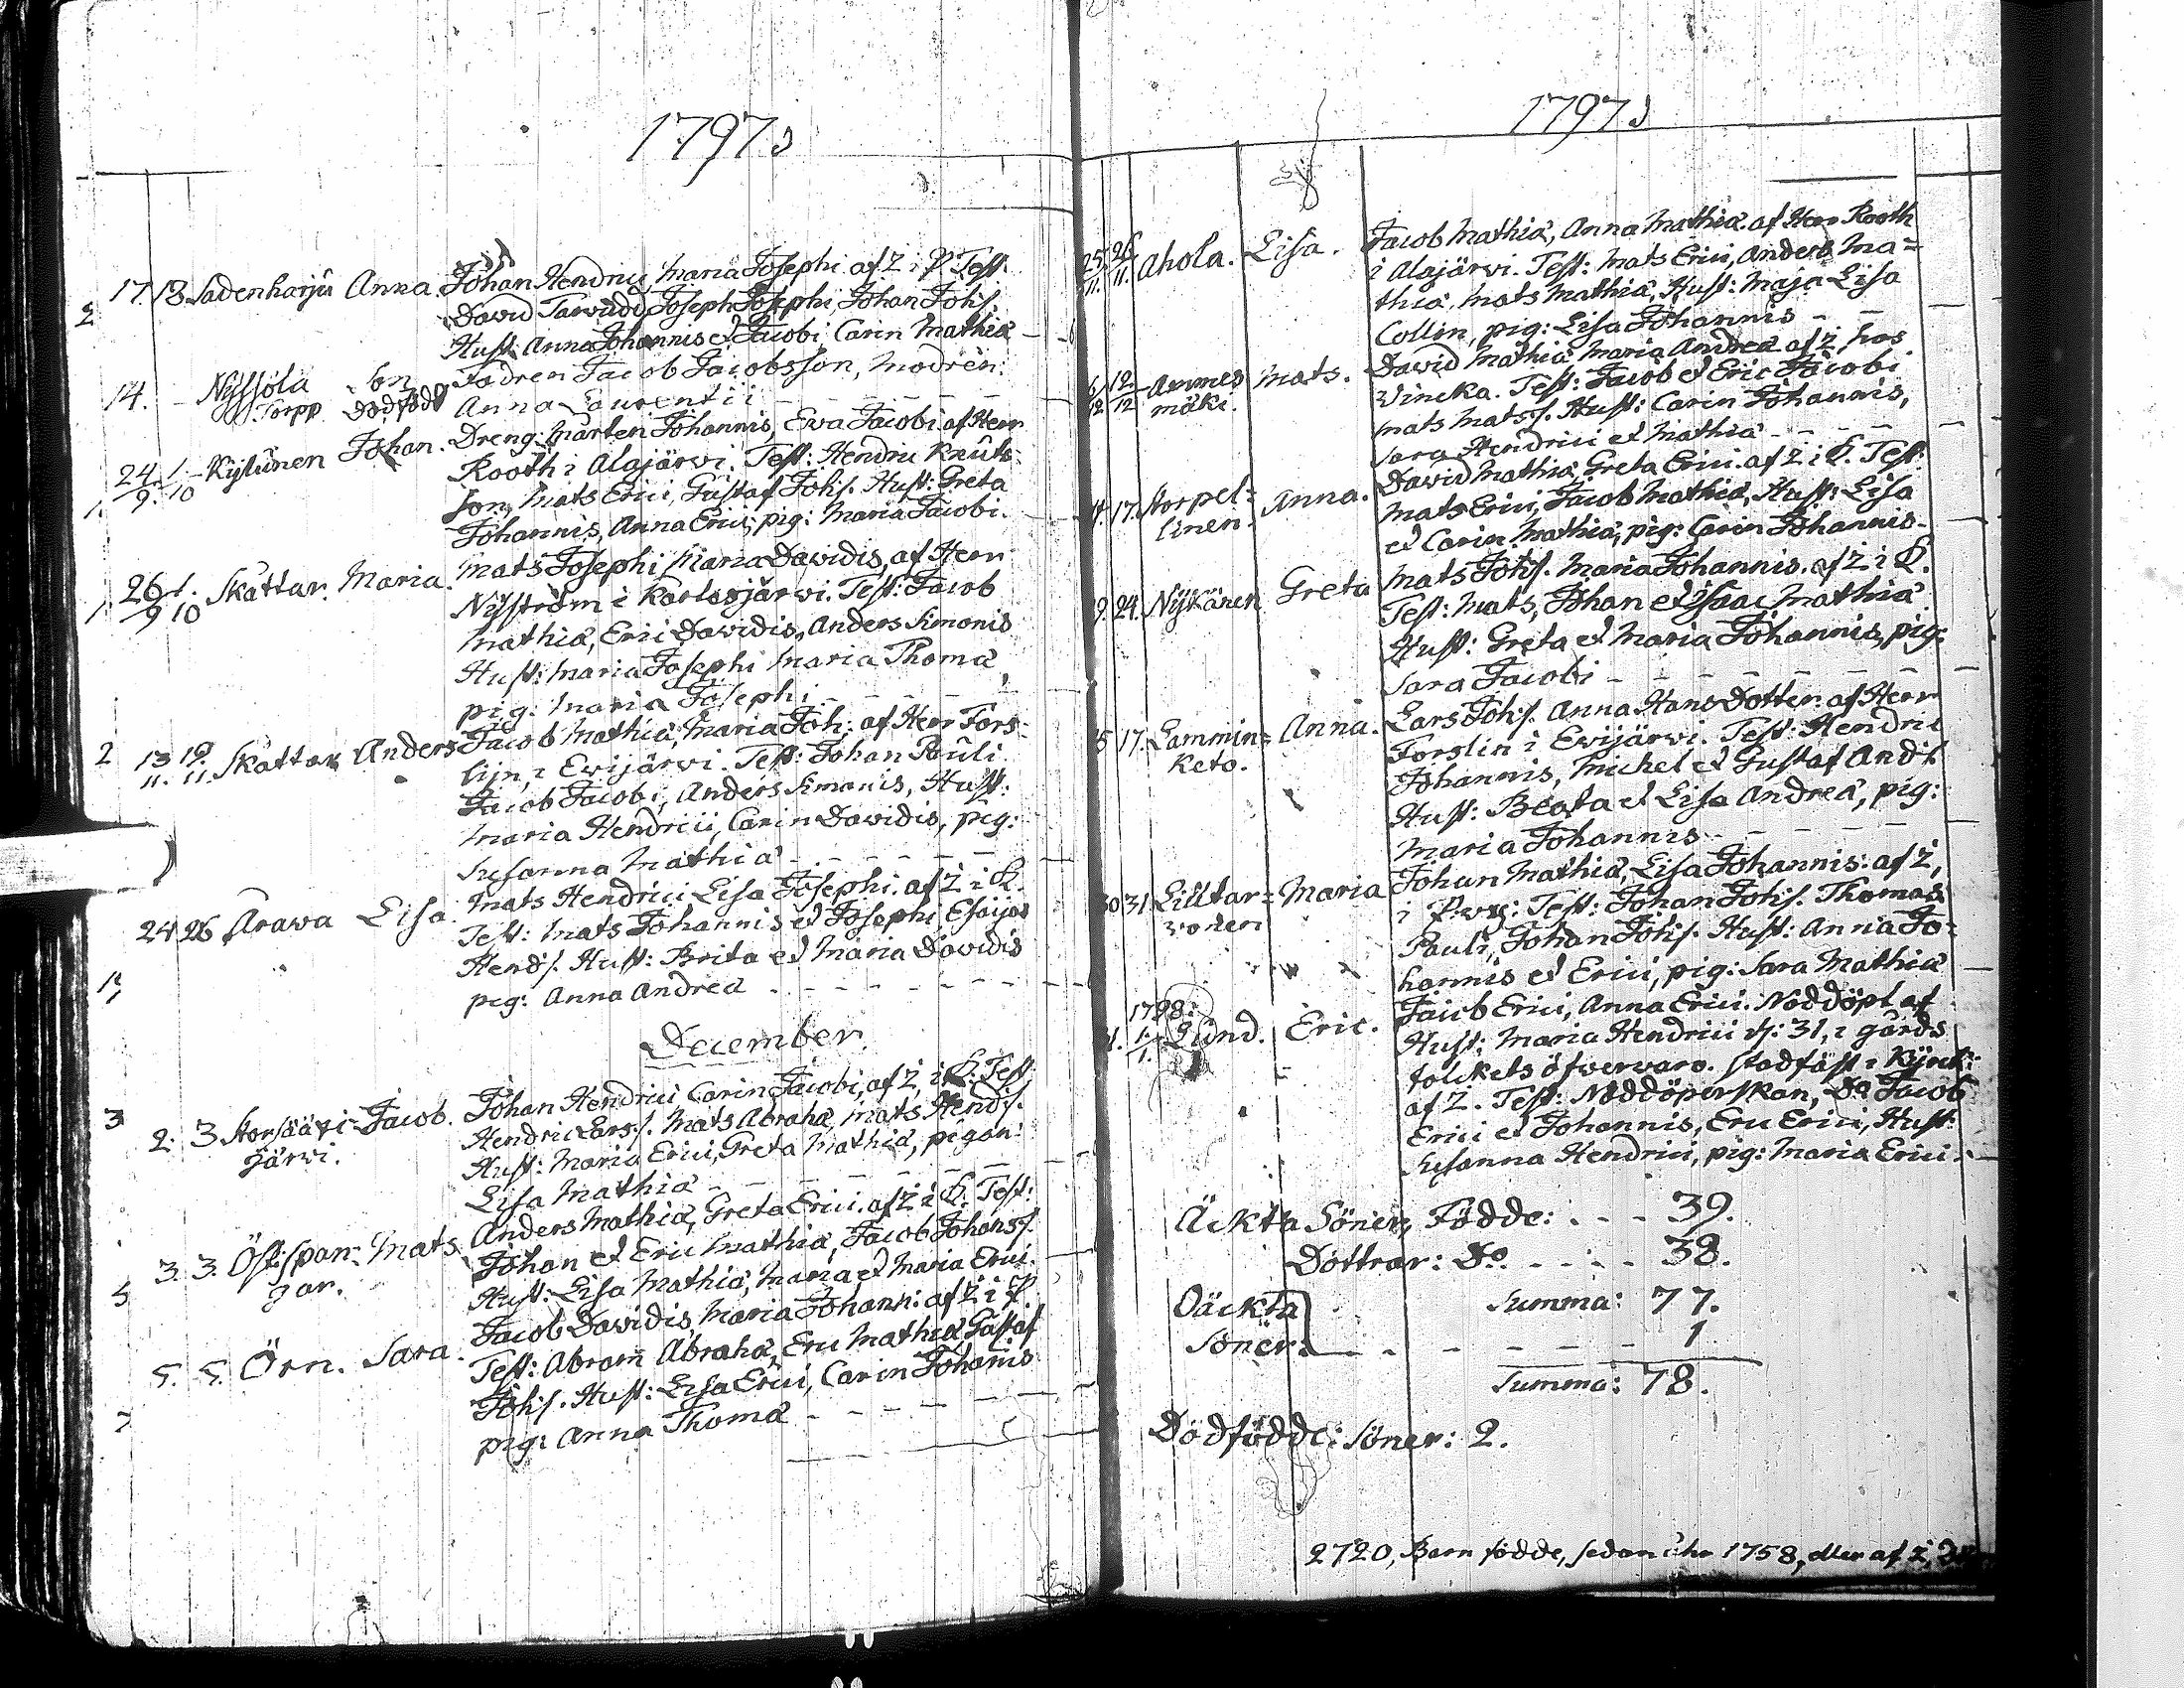 1797
17. 18. Sadenharju Anna. Johan Hendrici Maria Josephi af Z i P. Test:
David Joseph Josephi, Johan Johs.
Hust: Anna Johannis et Jacobi Carin Mathiä
14. Nyssölä Torpp Son Dödfödd Fadren Jacob Jacobsson, Modren
Anna Laurentii
24/9. 1/10 Kylunen Johan. Dreng: Mårten Johannis, Ewa Jacobi af Herr
Rooth i Alajärwi. Test: Hendric Knuts
son, Mats Erici, Gustaf Johs. Hust: Greta
Johannis, Anna Erici, pig: Maria Jacobi.
26/9 1/10 Skattar. Maria. Mats Josephi Maria Davidis, af Herr
Nyström i Kortesjärwi. Test: Jacob
Mathiä, Eric Davidis, Anders Simonis
Hust: Maria Josephi Maria Thomä
pig: Maria Josephi
13/11. 19/11. Skattar Anders Jacob Mathiä, Maria Joh: af Herr Fors-
lijn, i Ewijärwi. Test: Johan Pauli
Jacob Jacobi, Anders Simonis, Hust:
Maria Hendrici, Carin Davidis, pig:
Susanna Mathiä
24 26 Arawa Lisa. Mats Hendrici Lisa Josephi. af Z i K.
Test: Mats Johannis et Josephi Esaijas
Hends. Hust: Brita et Maria Davidis
pig: Anna Andreä
December
2. 3. Storsääri- Jacob. Johan Hendrici Carin Jacobi, af Z, i K. Test:
järwi. Hendric Larss. Mats Abrahä, Mats Hends.
Hust: Maria Erici, Greta Mathiä, pigan:
Lisa Mathiä
3. 3. Östspan- Mats Anders Mathiä, Greta Erici. af Z i K. Test:
gar. Johan et Eric Mathiä, Jacob Johanss.
Hust: Lisa Mathiä, Maria et Maria Erici.
5. 5. Örn. Sara. Jacob Davidis Maria Johann: af Z i P
Test: Abram Abrahä, Eric Mathiä Gustaf
Johs. Hust: Lisa Erici, Carin Johanis
pig: Anna Thomä
1797
25/11. 26/11. Ahola. Lisa. Jacob Mathiä, Anna Mathiä. af Herr Rooth
i Alajärwi. Test: Mats Erici, Anders Ma=
thiä, Mats Mathiä, Hust: Maja Lisa
Collin, pig: Lisa Johannis
6/12 12/12 Ammes mäki. Mats. David Mathiä Maria Andreä af Z, hos
Wincka. Test: Jacob et Eric Jacobi
Mats Matss. Hust: Carin Johannis,
Sara Hendrici et Mathiä
17. Storpel= Anna. David Mathiä, Greta Erici. af Z i K. Test:
linen. Mats Erici, Jacob Mathiä, Hust: Lisa
et Carin Mathiä, pig: Carin Johannis
24. Nykänen Greta Mats Johs. Maria Johannis. af Z i K.
Test: Mats, Johan et Isaac Mathiä
Hust: Greta et Maria Johannis, pig:
Sara Jacobi
15 17. Lammin= Anna. Lars Johs. Anna Hans Dotter. af Herr
keto. Forslin i Ewijärwi. Test: Hendric
Johannis, Michel et Gustaf Ands
Hust: Beata et Lisa Andreä, pig:
Maria Johannis
30 31 Lilltar= Maria Johan Mathiä, Lisa Johannis: af Z,
vonen i Test: Johan Johs. Thomas
Pauli, Johan Johs. Hust: Anna Jo-
hannis et Erici, pig: Sara Mathiä
1798:
1/1. Lind. Eric. Jacob Erici, Anna Erici. Nöddöpt af
Hust: Maria Hendrici d: 31, i gårds
folckets öfwerwaro. Stadfäst i Kyrck:
af Z. Test: Nöddöperskan, Do Jacob
Erici et Johannis, Eric Erici, Hust:
Susanna Hendrici, pig: Maria Erici.
Äckta Söner, Födde: 39.
Döttrar: Do. 38.
Summa: 77.
Oäckta
Söner: 1
Summa: 78.
Dödfödde: Söner: 2.
2720, Barn födde, sedan åhr 1758,